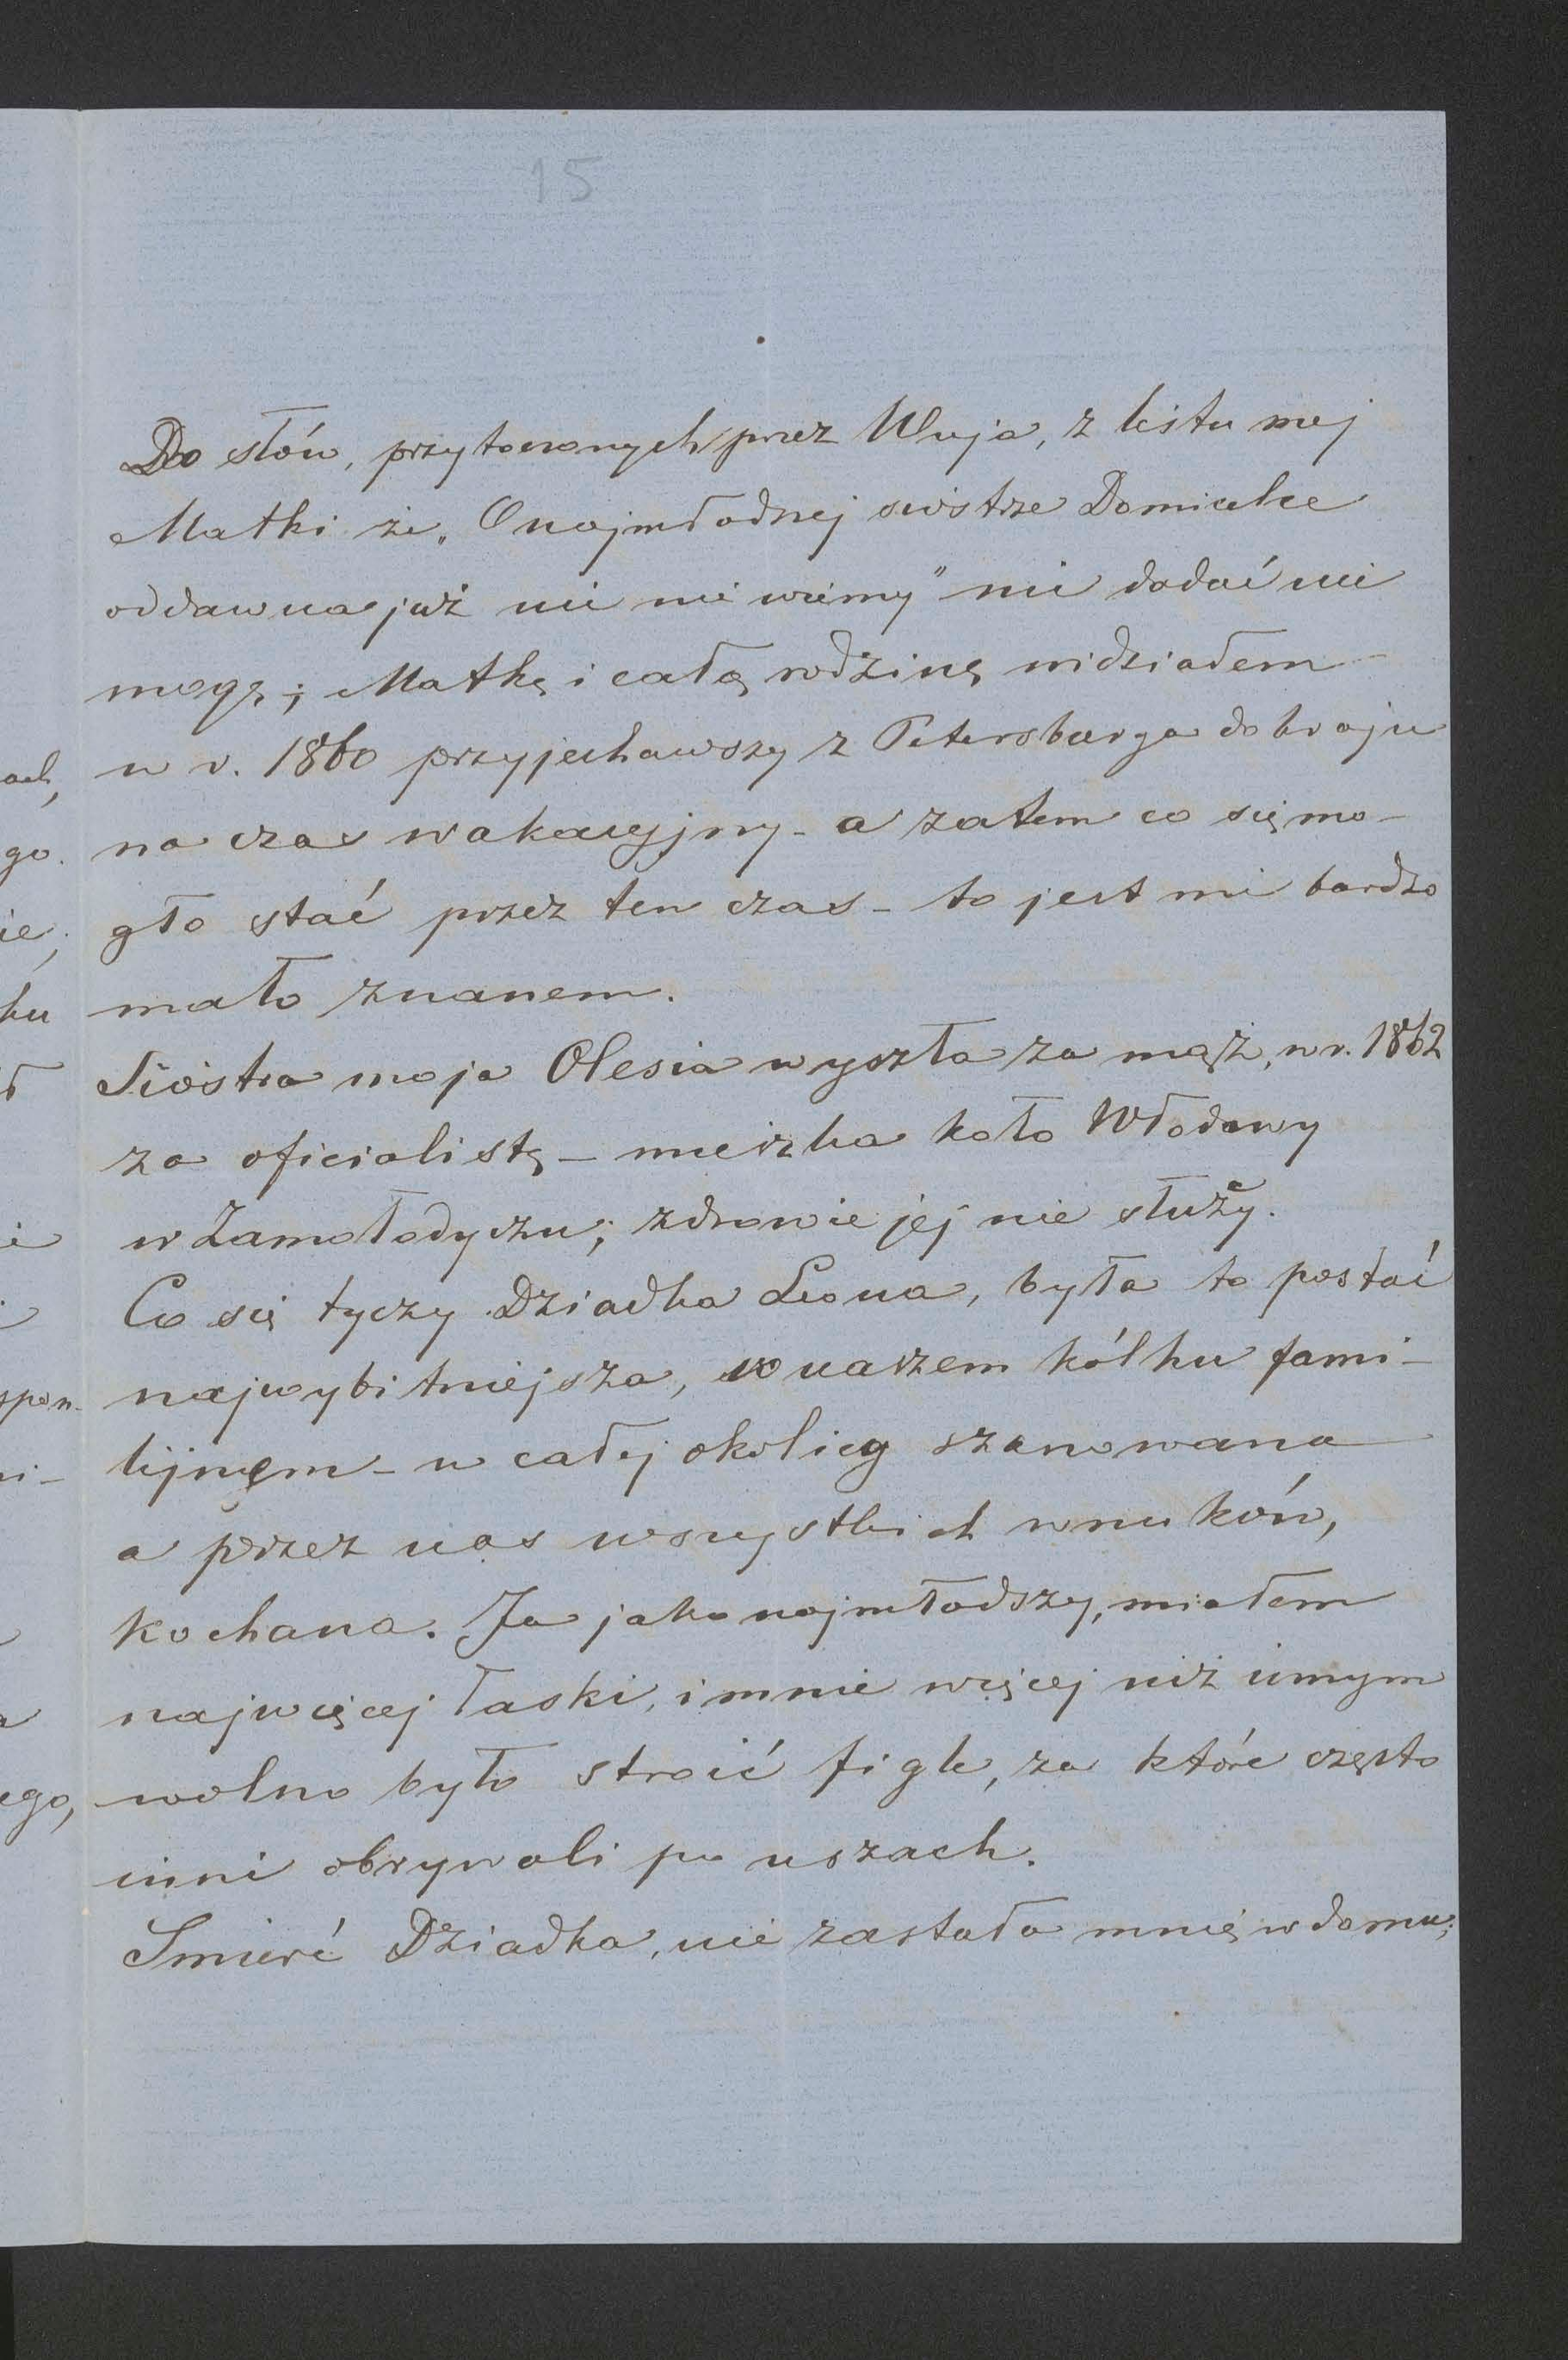 15
Do słów, przytoczonych przez Wuja, z listu mej
Matki że „O najmłodszej siostrze Domicelce
oddawna już nic nie wiemy" nic dodać nie
mogę; Matkę i całą rodzinę widziałem
w r. 1860 przyjechawszy z Petersburga do kraju
na czas wakacyjny - a zatem co się mo-
gło stać przez ten czas - to jest mi bardzo
mało znanem.
Siostra moja Olesia wyszła za mąż, w r. 1862
za oficialistę - mieszka koło Włodawy
w Zamołodyczu; zdrowie jej nie służy.
Co się tyczy Dziadka Leona, była to postać
najwybitniejsza, w naszem kółku fami-
lijnem - w całej okolicy szanowana
a przez nas wszystkich wnuków,
kochana. Ja jako najmłodszy, miałem
najwięcej łaski, i mnie więcej niż innym
wolno było stroić figle, za które często
inni obrywali po uszach.
Śmierć Dziadka, nie zastała mnie w domu;
ach,
go.
ie,
ku
ł
spon-
ni-
ego,